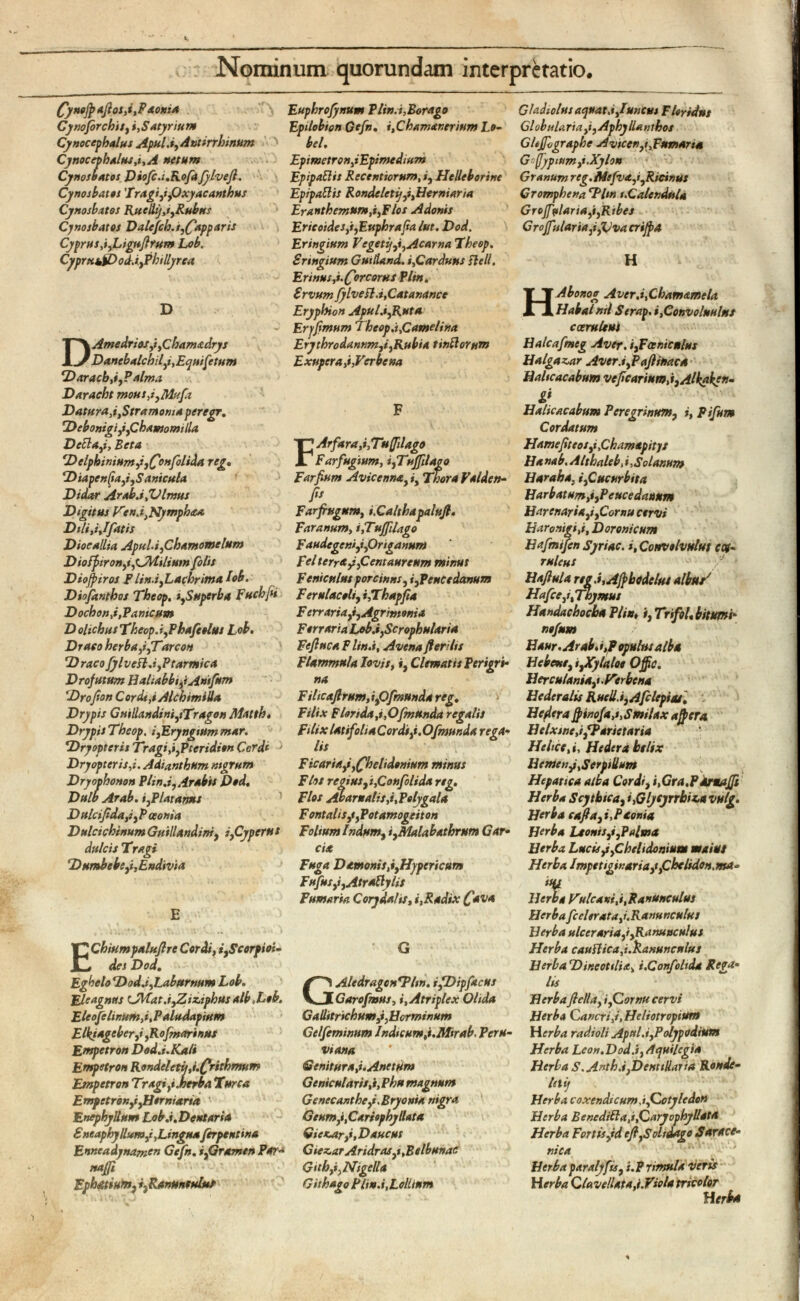 Nominum quorundam interpretatio.
Cynospastos,i,Paonia
Cynosorchis, i,Satyrium
Cynocephalus Apul.i,Antirrhinum
Cynocephalus,i,A netum
Cynosbatos Diosc.i.Rosa sylvest.
Cynosbatos Tragi,i,Oxyacanthus
Cynosbatos Ruellij,i,Rubus
Cynosbatos Dalesch.i,Capparis
Cyprus,i,Ligustrum Lob.
Dod.i,Phillyrea
D
DAmedrios,i,Chamædrys
Danebalchil,i,Equisetum
Darach,i,Palma
Daracht mous,i,Musa
Datura,i,Stramonia peregr.
Debonigi,i,Chamomilla
Decta,i, Beta
Delphinium,i,Consolida reg.
Diapensia,i,Sanicula
Didar Arab.i,Ulmus
Digitus Ven.i,Nymphæa
Dili,i,Isatis
Diocallia Apul.i,Chamomelum
Diospiron,i,Milium solis
Diospiros Plin.i,Lachrima Iob.
Diosanthos Theop. i,Superba Fuchsii
Dochon,i,Panicum
Dolichus Theop.i,Phaseolus Lob.
Draco herba,i,Tarcon
Draco sylvest.i,Ptarmica
Drosutum Haliabbi,i Anisum
Drosion Cordi,i Alchimilla
Drypis Guillandini,i Tragon Matth.
Drypis Theop. i,Eryngium mar.
Dryopteris Tragi,i,Pteridion Cordi
Dryopteris,i. Adianthum nigrum
Dryophonon Plin.i,Arabis Dod.
Dulb Arab. i,Platanus
Dulcisida,i,Pœonia
Dulcichinum Guillandini, i,Cyperus
dulcis Tragi
Dumbebe,i,Endivia
E
EChium palustre Cordi, i,Scorpioi-
des Dod.
Eghelo Dod.i,Laburnum Lob.
Eleagnus Mat.i,Ziziphus alb.Lob.
Eleoselinum,i,Paludapium
Elkiageber,i,Rosmarinus
Empetron Dod.i.Kali
Empetron Rondeletij,i.Crithmum
Empetron Tragi,i.herba Turca
Empetron,i,Herniaria
Enephyllum Lob.i,Dentaria
Eneaphyllum,i,Lingua serpentina
Enneadynamen Gesn. i,Gramen Par-
nassi
Ephatium, i,Ranunculus
Euphrosynum Plin.i,Borago
Epilobion Gesn. i,Chamænerium Lo-
bel.
Epimetron,i Epimedium
Epipactis Recentiorum, i, Helleborine
Epipactis Rondeletij,i,Herniaria
Eranthemum,i,Flos Adonis
Ericoides,i,Euphrasia lut. Dod.
Eringium Vegetij,i,Acarna Theop.
Eringium Guilland. i,Carduus stell.
Erinus,i.Corcorus Plin.
Ervum sylvest.i,Catanance
Eryphion Apul.i,Ruta
Erysimum Theop.i,Camelina
Erythrodanum,i,Rubia tinctorum
Exupera,i,Verbena
F
FArfara,i,Tussilago
Farfugium, i,Tussilago
Farfium Avicennæ,i, Thora Valden-
sis
Farfrugum, i.Caltha palust.
Faranum, i,Tussilago
Faudegeni,i,Origanum
Fel terræ,i,Centaureum minus
Feniculus porcinus, i,Peucedanum
Ferulacoli, i,Thapsia
Ferraria,i,Agrimonia
Ferraria Lob.i,Scrophularia
Festuca Plin.i, Avena sterilis
Flammula Iovis, i, Clematis Perigri-
na
Filicastrum,i,Osmunda reg.
Filix Florida,i,Osmunda regalis
Filix latifolia Cordi,i.Osmunda rega-
lis
Ficaria,i,Chelidonium minus
Flos regius,i,Consolida reg.
Flos Abarualis,i,Polygala
Fontalis,i,Potamogeiton
Folium Indum, i,Malabathrum Gar-
ciæ
Fuga Dæmonis,i,Hypericum
Fusus,i,Atractylis
Fumaria Corydalis, i,Radix Cava
G
GAledragon Plin. i,Dipsacus
Garosmus, i,Atriplex Olida
Gallitrichum,i,Horminum
Gelseminum Indicum,i.Mirab. Peru-
viana
Genitura,i.Anetum
Genicularis,i,Phu magnum
Genecanthe,i.Bryonia nigra
Geum,i,Cariophyllata
Giezar,i,Daucus
Giezar Aridras,i,Belbunac
Gith,i,Nigella
Githago Plin.i,Lollium
Gladiolus aquat.i,Iuncus Floridus
Globularia,i,Aphyllanthos
Glossographe Avicen,i,Fumaria
Gossypium,i.Xylon
Granum reg.Mesvæ,i,Ricinus
Gromphena Plin i.Calendula
Grossularia,i,Ribes
Grossularia,i,Uva crispa
H
HAbonog Aver.i,Chamæmela
Habal nil Serap. i,Convoluulus
cœruleus
Halcasmeg Aver. i,Fœniculus
Halgazar Aver.i,Pastinaca
Halicacabum vesicarium,i,Alkaken-
gi
Halicacabum Peregrinum, i, Pisum
Cordatum
Hamesiteos,i,Chamæpitys
Hanab.Althaleb,i,Solanum
Haraha, i,Cucurbita
Harbatum,i,Peucedanum
Harenaria,i,Cornu cervi
Haronigi,i, Doronicum
Hasmisen Syriac. i,Convolvulus cœ-
ruleus
Hastula reg.i,Asphodelus albus
Hasce,i,Thymus
Handachocha Plin. i, Trifol. bitumi-
nosum
Haur.Arab.i,Populus alba
Hebene, i,Xylaloe Offic.
Herculania,i.Verbena
Hederalis Ruell.i,Asclepias.
Hedera spinosa,i,Smilax aspera
Helxine,i,Parietaria
Helice,i, Hedera helix
Hemen,i,Serpillum
Hepatica alba Cordi, i,Gra.Parnassi
Herba Scythica, i,Glycyrrhiza vulg.
Herba casta, i,Pæonia
Herba Leonis,i,Palma
Herba Lucis,i,Chelidonium maius
Herba Impetiginaria,i,Chelidon.ma-
ius
Herba Vulcani,i,Ranunculus
Herba scelerata,i.Ranunculus
Herba ulceraria,i,Ranunculus
Herba caustica,i.Ranunculus
Herba Dineotiliæ, i.Consolida Rega-
lis
Herba stella, i,Cornu cervi
Herba Cancri,i,Heliotropium
Herba radioli Apul.i,Polypodium
Herba Leon.Dod.i, Aquilegia
Herba S.Anth.i,Dentillaria Ronde-
letij
Herba coxendicum,i,Cotyledon
Herba Benedicta,i,Caryophyllata
Herba Fortis,id est,Solidago Sarace-
nica
Herba paralysis, i.Primula veris
Herba Clavellata,i.Viola tricolor
Herba